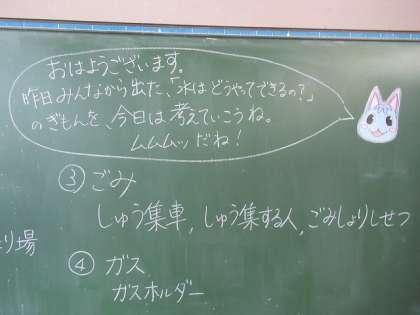 おはようございます。
昨日みんなから出た、「水はどうやってできるの?」
のぎもんを、今日は考えていこうね。
ムムムッだね!
③ごみ
しゅう集車,しゅう集する人,ごみしょりしせつ
り場
④ガス
ガスホルダー